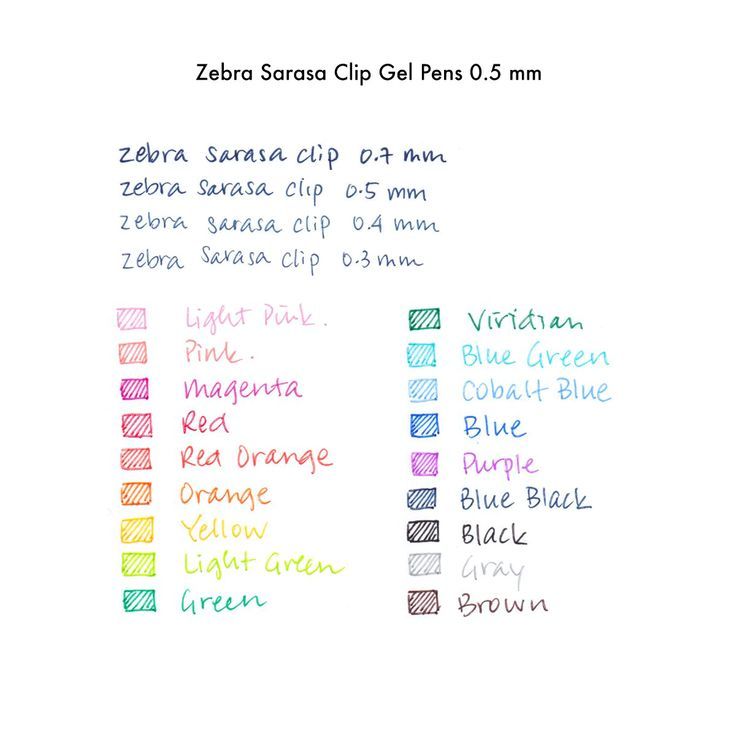 Zebra Sarasa Clip Gel Pens 0.5 mm
zebra sarasa clip 0.7 mm
zebra sarasa clip 0.5 mm
zebra sarasa clip 0.4 mm
zebra sarasa clip 0.3 mm
Light Pink.
Pink.
Magenta
Red
Red Orange
Orange
Yellow
Light Green
Green
Viridian
Blue Green
Cobalt Blue
Blue
Purple
Blue Black
Black
Gray
Brown